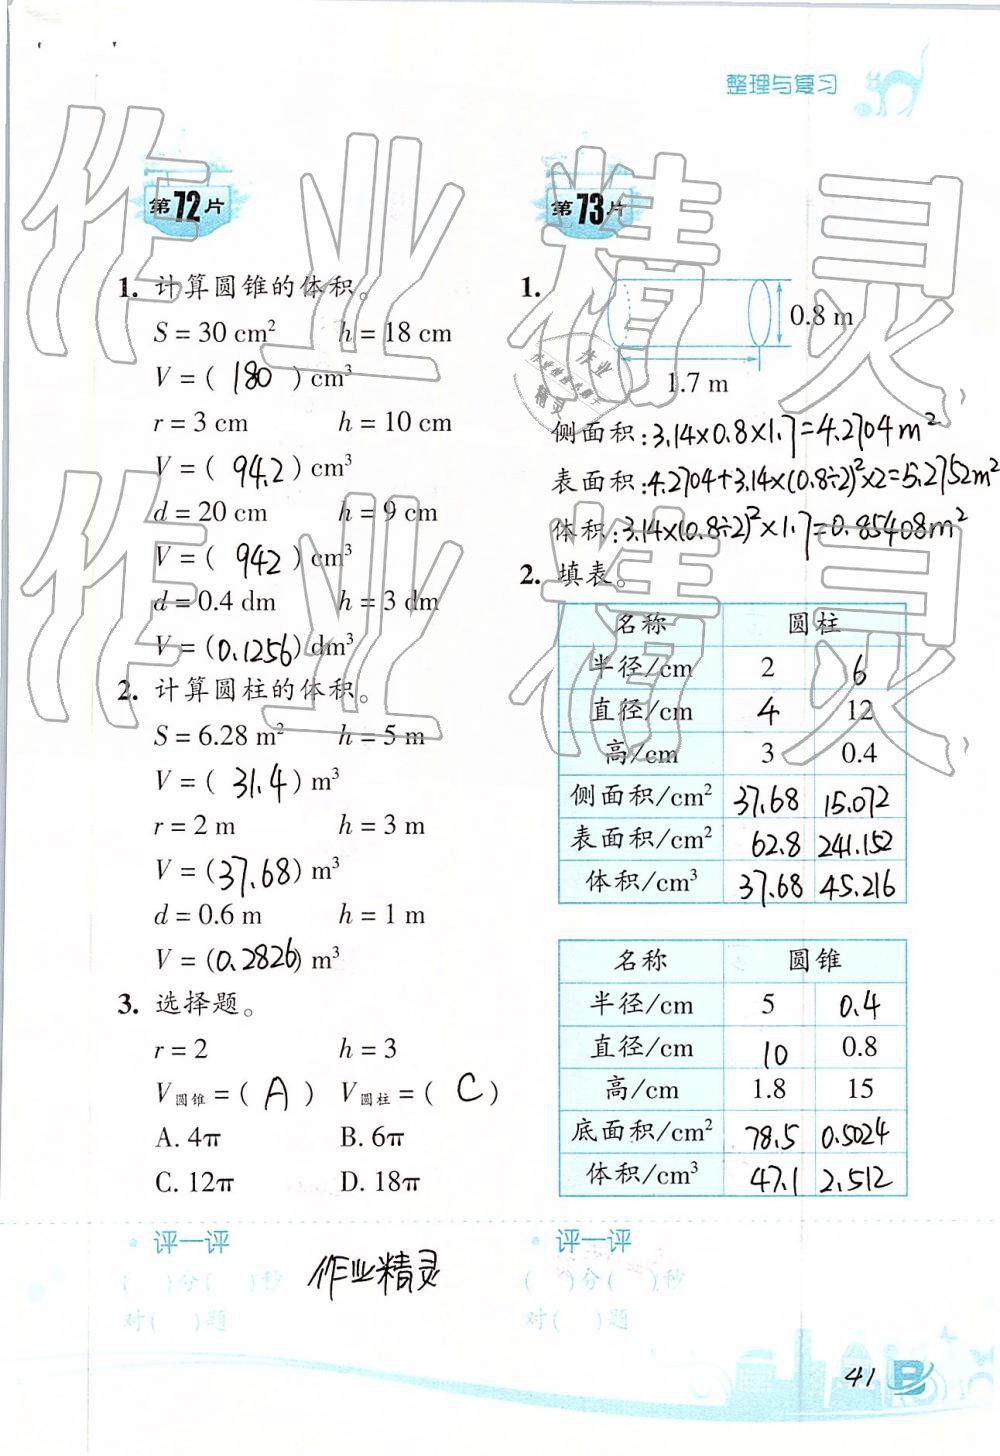 整理与复习
第72片
1. 计算圆锥的体积。
S = 30 cm² h = 18 cm
V = ( 180 ) cm³
r = 3 cm h = 10 cm
V = ( 94.2 ) cm³
d = 20 cm h = 9 cm
V = ( 942 ) cm³
d = 0.4 dm h = 3 dm
V = (0.1256) dm³
2. 计算圆柱的体积。
S = 6.28 m² h = 5 m
V = ( 31.4 ) m³
r = 2 m h = 3 m
V = (37.68) m³
d = 0.6 m h = 1 m
V = (0.2826) m³
3. 选择题。
r = 2 h = 3
V圆锥 = ( A ) V圆柱 = ( C )
A. 4π B. 6π
C. 12π D. 18π
评一评
( )分( )秒
对( )题
作业精灵
第73片
1.
0.8 m
1.7 m
侧面积:3.14×0.8×1.7=4.2704m²
表面积:4.2704+3.14×(0.8÷2)²×2=5.2752m²
体积:3.14×(0.8÷2)²×1.7=0.85408m²
2. 填表。
名称 圆柱
半径/cm 2 6
直径/cm 4 12
高/cm 3 0.4
侧面积/cm² 37.68 15.072
表面积/cm² 62.8 241.152
体积/cm³ 37.68 45.216
名称 圆锥
半径/cm 5 0.4
直径/cm 10 0.8
高/cm 1.8 15
底面积/cm² 78.5 0.5024
体积/cm³ 47.1 2.512
评一评
( )分( )秒
对( )题
41
作业精灵
作业精灵
作业
精灵